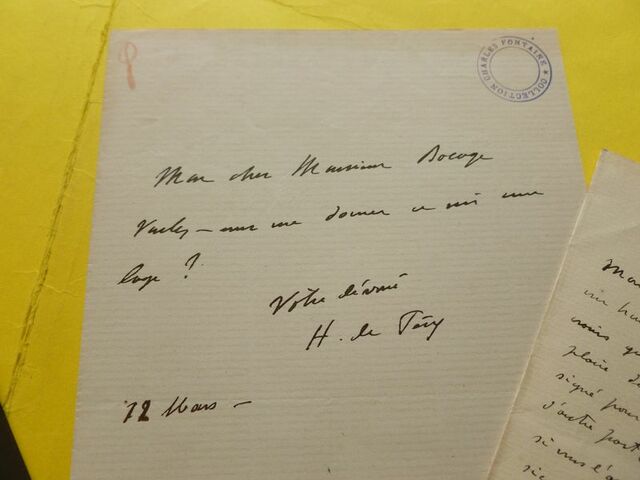 COLLECTION CHARLES FONTAINE
Mon cher Monsieur Bocage
Voulez-vous me donner ce soir une
loge ?
Votre dévoué
H. de Pène
12 Mars -
Mon
un ha
vous qu
plaire de
signé pour
d'autre part
si vous l'a